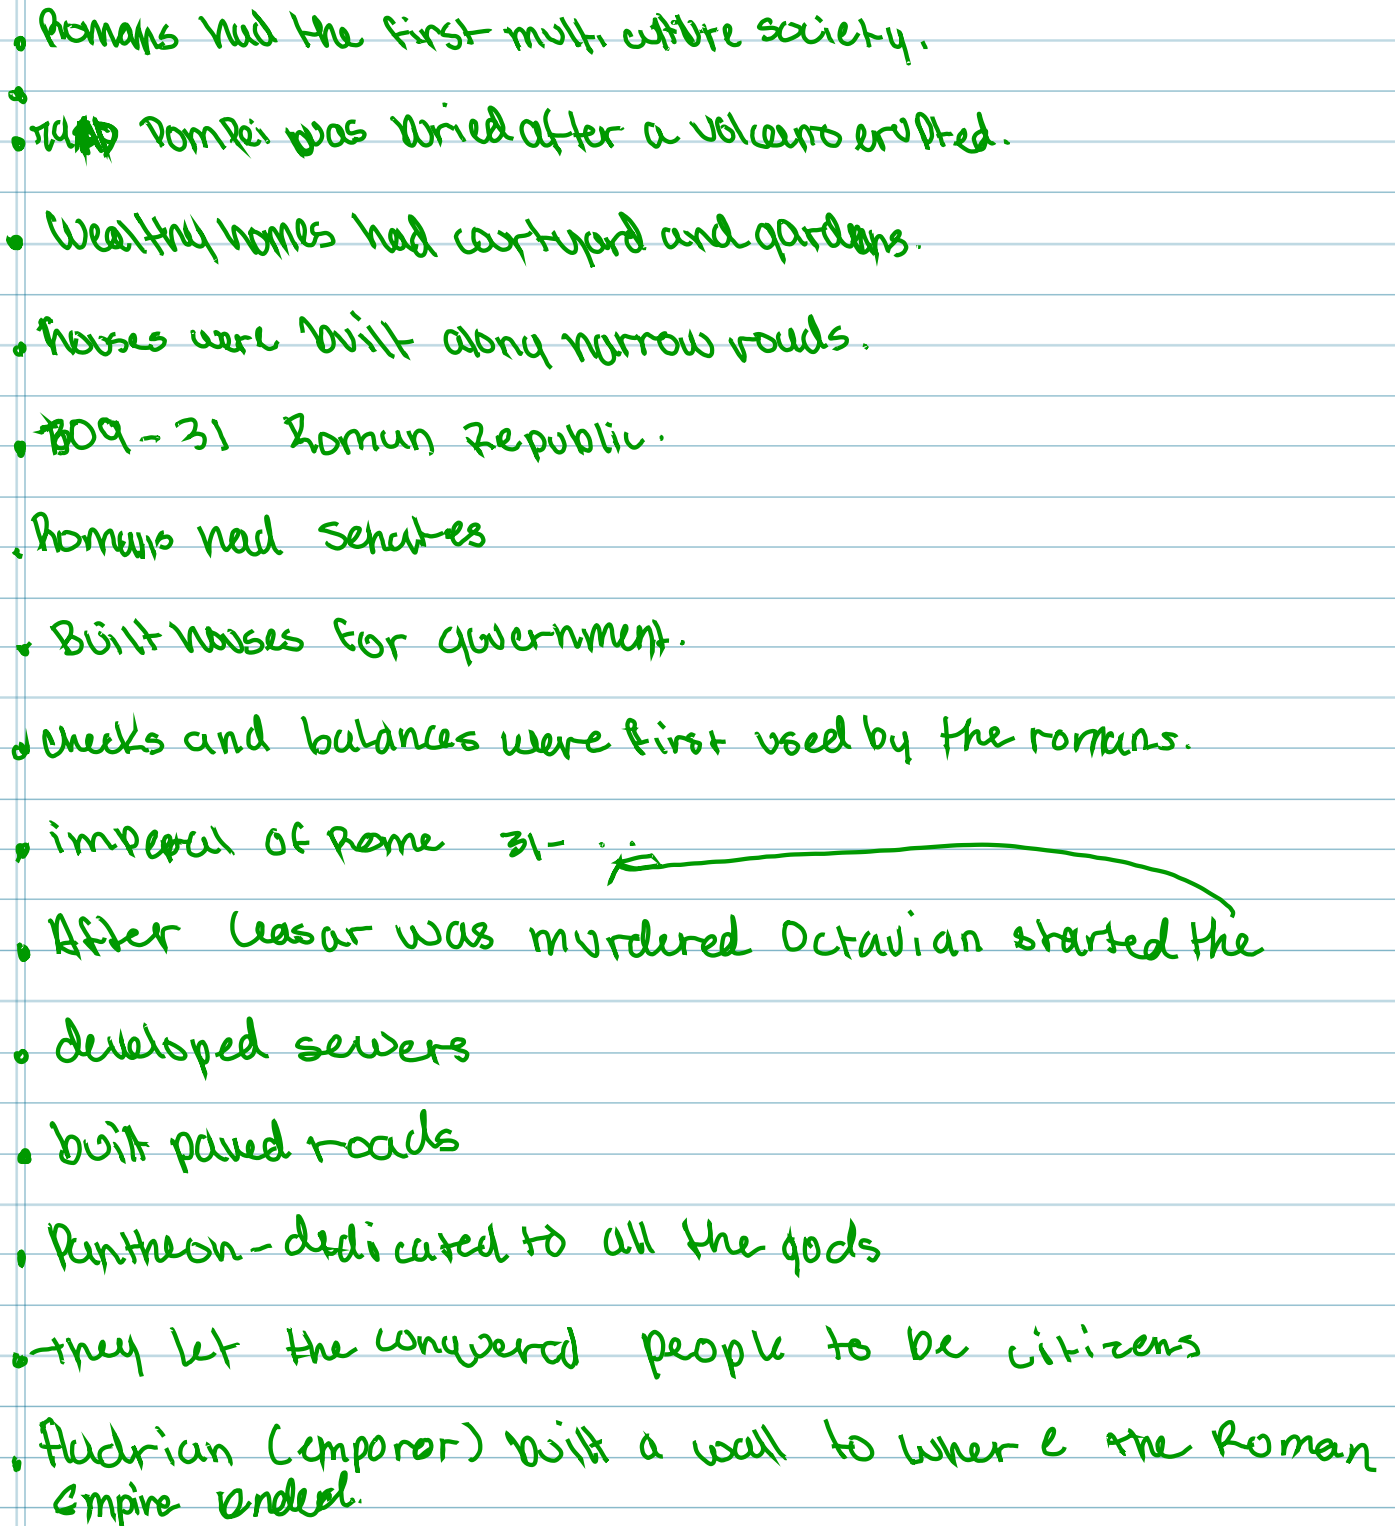 • Romans had the first multi culture society.
•
• Pompei was buried after a volcano erupted.
• Wealthy homes had courtyard and gardens.
• houses were built along narrow roads.
• 509-31 Roman Republic.
• Romans had Senates
• Built houses for government.
• checks and balances were first used by the romans.
• imperal of Rome 31- ...
• After Ceasar was murdered Octavian started the
• developed sewers
• built paved roads
• Pantheon - dedicated to all the gods
• they let the conquered people to be citizens
• Hadrian (emporor) built a wall to where the Roman
Empire ended.